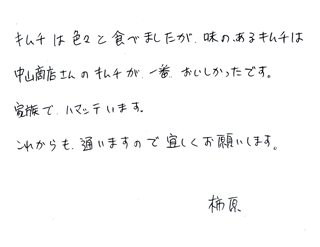 キムチは色々と食べましたが、味のあるキムチは
中山商店さんのキムチが、一番、おいしかったです。
家族で、ハマッています。
これからも、通いますので宜しくお願いします。
柿原